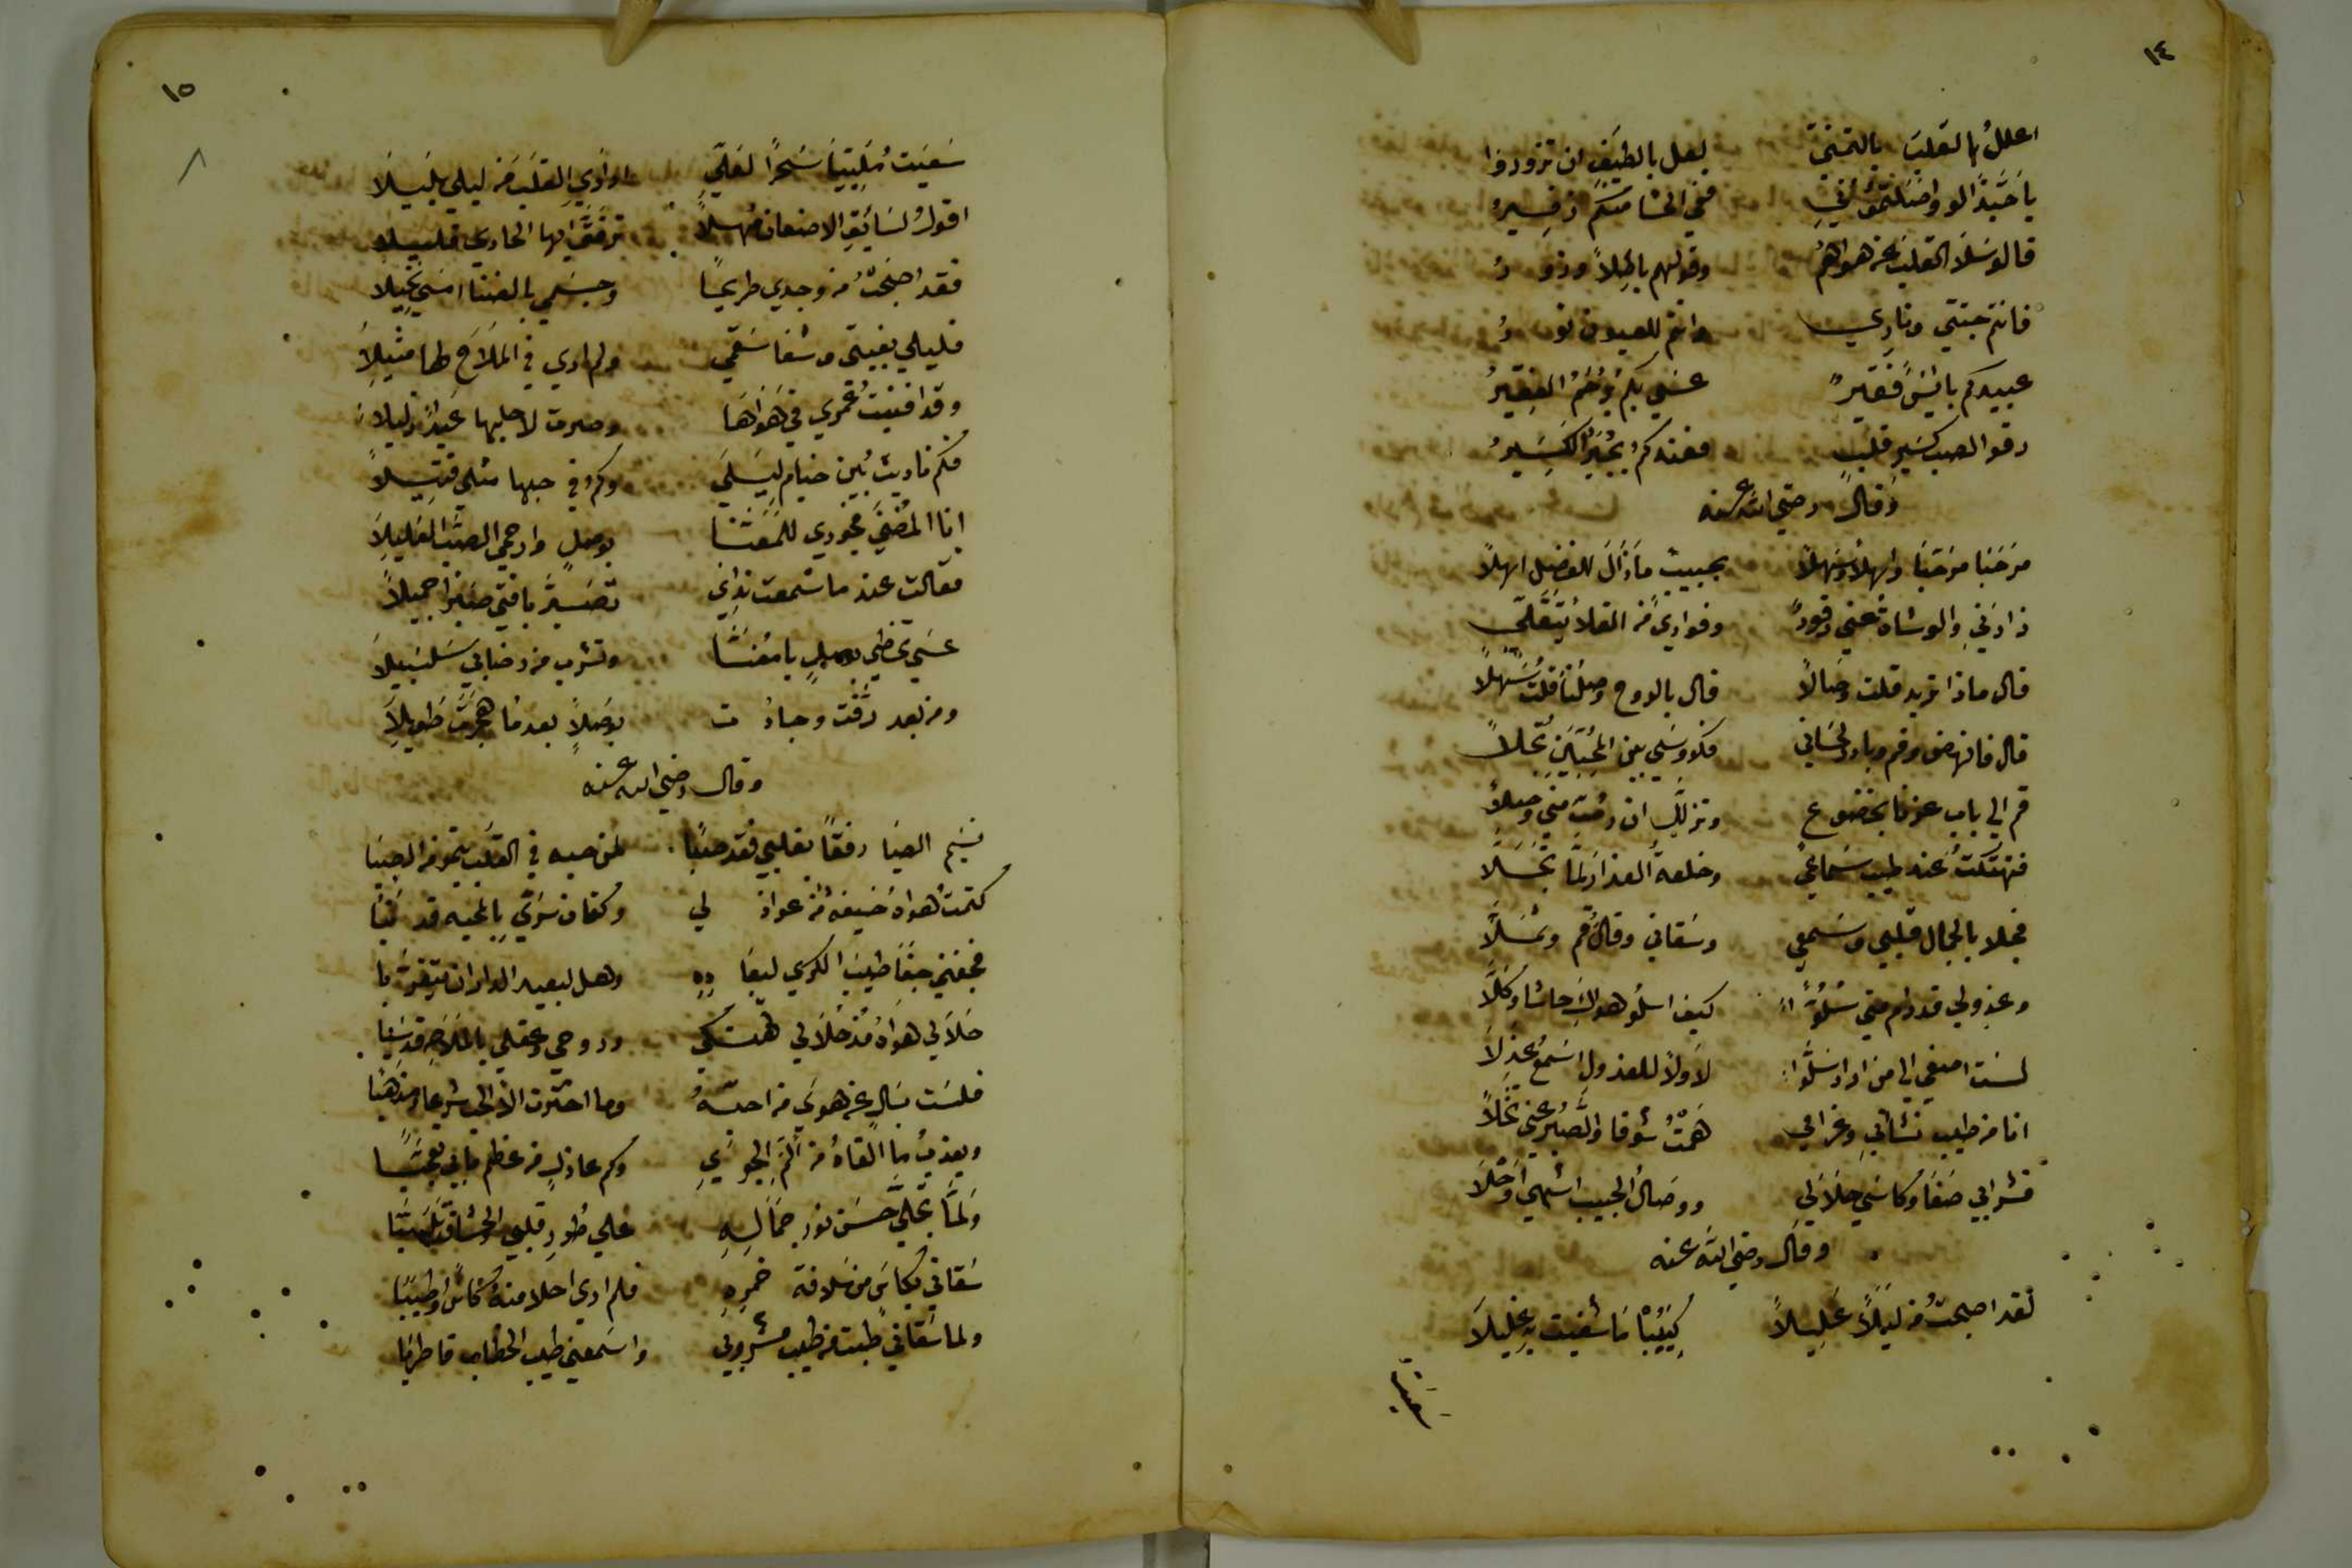 ١٤
اعلل بالقلب بالتمني لعل بالطيف ان تزوروا
يا حبذا لو واصلتموني ففي الحشا منكم زفير
قالو سلا القلب عن هواهم وقولهم باطلا وزور
فانتم جنتي وناري وانتم للعيون نور
عبيدكم بائس فقير عسى بكم يرحم الفقير
رقو الصب كسير قلب فعندكم يجبر الكسير
وقال رضي الله عنه
مرحبا مرحبا واهلا وسهلا بحبيب ما زال للفضل اهلا
زارني والوشاة عني رقود وفوادي من القلا يتقلى
قال ماذا تريد قلت وصالا قال بالروح وصلنا قلت سهلا
قال فانهض وقم وبادر لحاني فكووسي بين المحبين تجلا
قم الى باب عزنا بخضوع وتزلل ان رمت مني وصلا
فتهتكت عند طيب سماعي وخلعة العذار لما تجلا
فجلا بالجمال قلبي وسمعي وسقاني وقال قم وتملا
وعذولي قد رام مني سلوا كيف اسلو هواك حاشا وكلا
لست اصغي الى من اراد سلوا لا ولا للعذول اسمع عذلا
انا من طيب نشاتي وغرامي همت شوقا والصبر عني تخلا
فشرابي صفا وكاسي حلا لي ووصال الحبيب اشهى واحلا
وقال رضي الله عنه
لقد اصبحت من ليلا عليلا كييبا ما شفيت به غليلا
سعيت
١٥
سعيت ملبيا سحرا لعلي اواري القلب من ليلي بليلا
اقول لسايق الاضعان مهلا ترفق ايها الحادي قليلا
فقد اصبحت من وجدي طريحا وجسمي بالضنا امسى نحيلا
فليلي بغيتي وشفا سقمي ولم ارى في الملاح لها مثيلا
وقد افنيت عمري في هواها وصرت لاجلها عبدا ذليلا
فكم ناديت بين خيام ليلى وكم في حبها مثلي قتيلا
انا المضنى فجودي للمعنا بوصل وارحمي الصب العليلا
فقالت عند ما سمعت ندائي تصبر يا فتى صبرا جميلا
عسى تحظى بوصل يا معنا وتشرب من رضابي سلسبيلا
ومن بعد رقت وجادت بوصلا بعد ما هجرت طويلا
وقال رضي الله عنه
نسيم الصبا رفقا بقلبي فقد صبا لمن حبه في القلب ينمو من الصبا
كتمت هواه خيفه من عواذلي وكتمان سري بالمحبه قد نبا
فجفني جفا طيب الكرى لبعاده وهل لبعيد الدار ان يتقربا
حلا لي هواه مذ حلا لي تهتكي وروحي وعقلي بالملاحه قد سبا
فلست بسال عن هوى من احبه وما اخترت الا الحب شرعا ومذهبا
ويعذب ما القاه من الم الجوى وكم عاذل من عظم ما بي تعجبا
ولما تجلى حسن نور جماله على طور قلبي والحشا قد تلهبا
سقاني بكاس من سلافة خمره فلم ارى احلا منه كاسا واطيبا
ولما سقاني طبت من طيب مشروبي واسمعني طيب الخطاب فاطربا